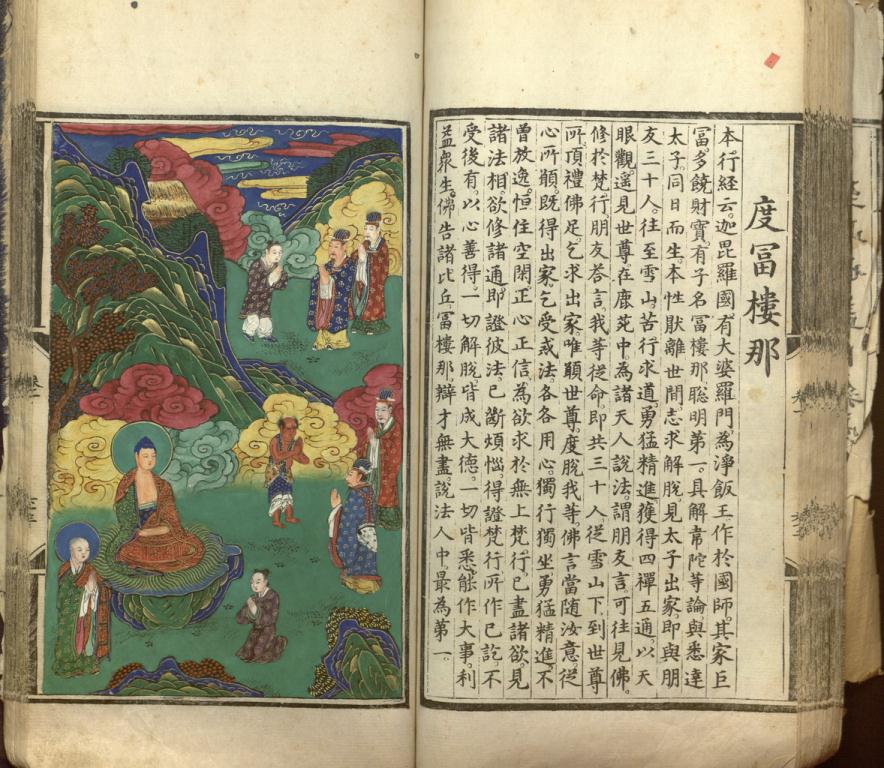 度冨樓那
本行経云。迦毘羅國有大婆羅門。為淨飯王作於國師。其家巨
冨。多饒財寳。有子名冨樓那。聡明第一。具解韋陀等論。與悉達
太子。同日而生。本性猒離世間。志求解脫。見太子出家。即與朋
友三十人。往至雪山。苦行求道。勇猛精進。獲得四禪五通。以天
眼觀。遥見世尊在鹿苑中。為諸天人說法。謂朋友言。可往見佛。
修於梵行。朋友荅言。我等從命。即共三十人。從雪山下。到世尊
所。頂禮佛足。乞求出家。唯願世尊。度脫我等。佛言。當随汝意。從
心所願。既得出家。乞受戒法。各各用心。獨行獨坐。勇猛精進。不
曾放逸。恒住空閑。正心正信。為欲求於無上梵行。已盡諸欲。見
諸法相。欲修諸通。即證彼法。已斷煩惱。得證梵行。所作已訖。不
受後有。以心善得一切解脫。皆成大德。一切皆悉能作大事。利
益衆生。佛告諸比丘。冨樓那。辯才無盡。說法人中。最為第一。